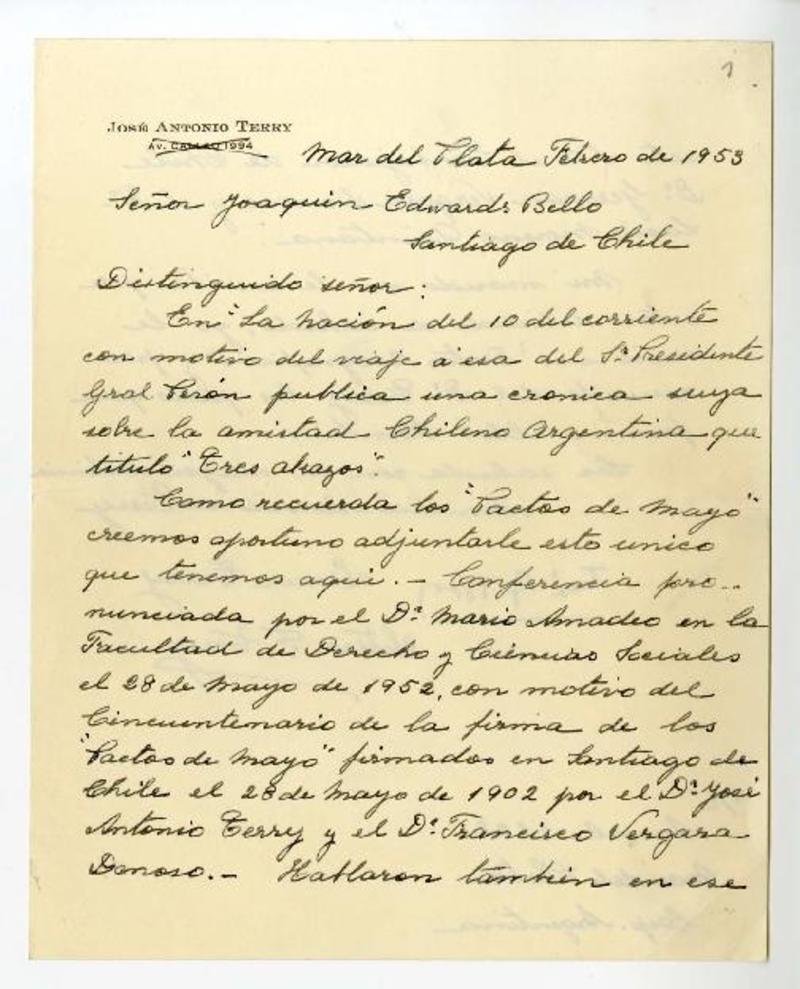 1
José Antonio Terry
Av. Callao 1994
Mar del Plata Febrero de 1953
Señor Joaquin Edwards Bello
Santiago de Chile
Distinguido señor:
En "La Nación del 10 del corriente
con motivo del viaje á esa del Sr. Presidente
Gral Perón publica una cronica suya
sobre la amistad Chileno Argentina que
tituló "Tres abazos".
Como recuerda los "Pactos de Mayo"
creemos oportuno adjuntarle esto unico
que tenemos aqui. - Conferencia pro..
nunciada por el Dr. Mario Amadeo en la
Facultad de Derecho y Ciencias Sociales
el 28 de Mayo de 1952, con motivo del
Cincuentenario de la firma de los
"Pactos de Mayo" firmados en Santiago de
Chile el 28 de Mayo de 1902 por el Dr. José
Antonio Terry y el Dr. Francisco Vergara
Donoso. - Hablaron tambien en ese